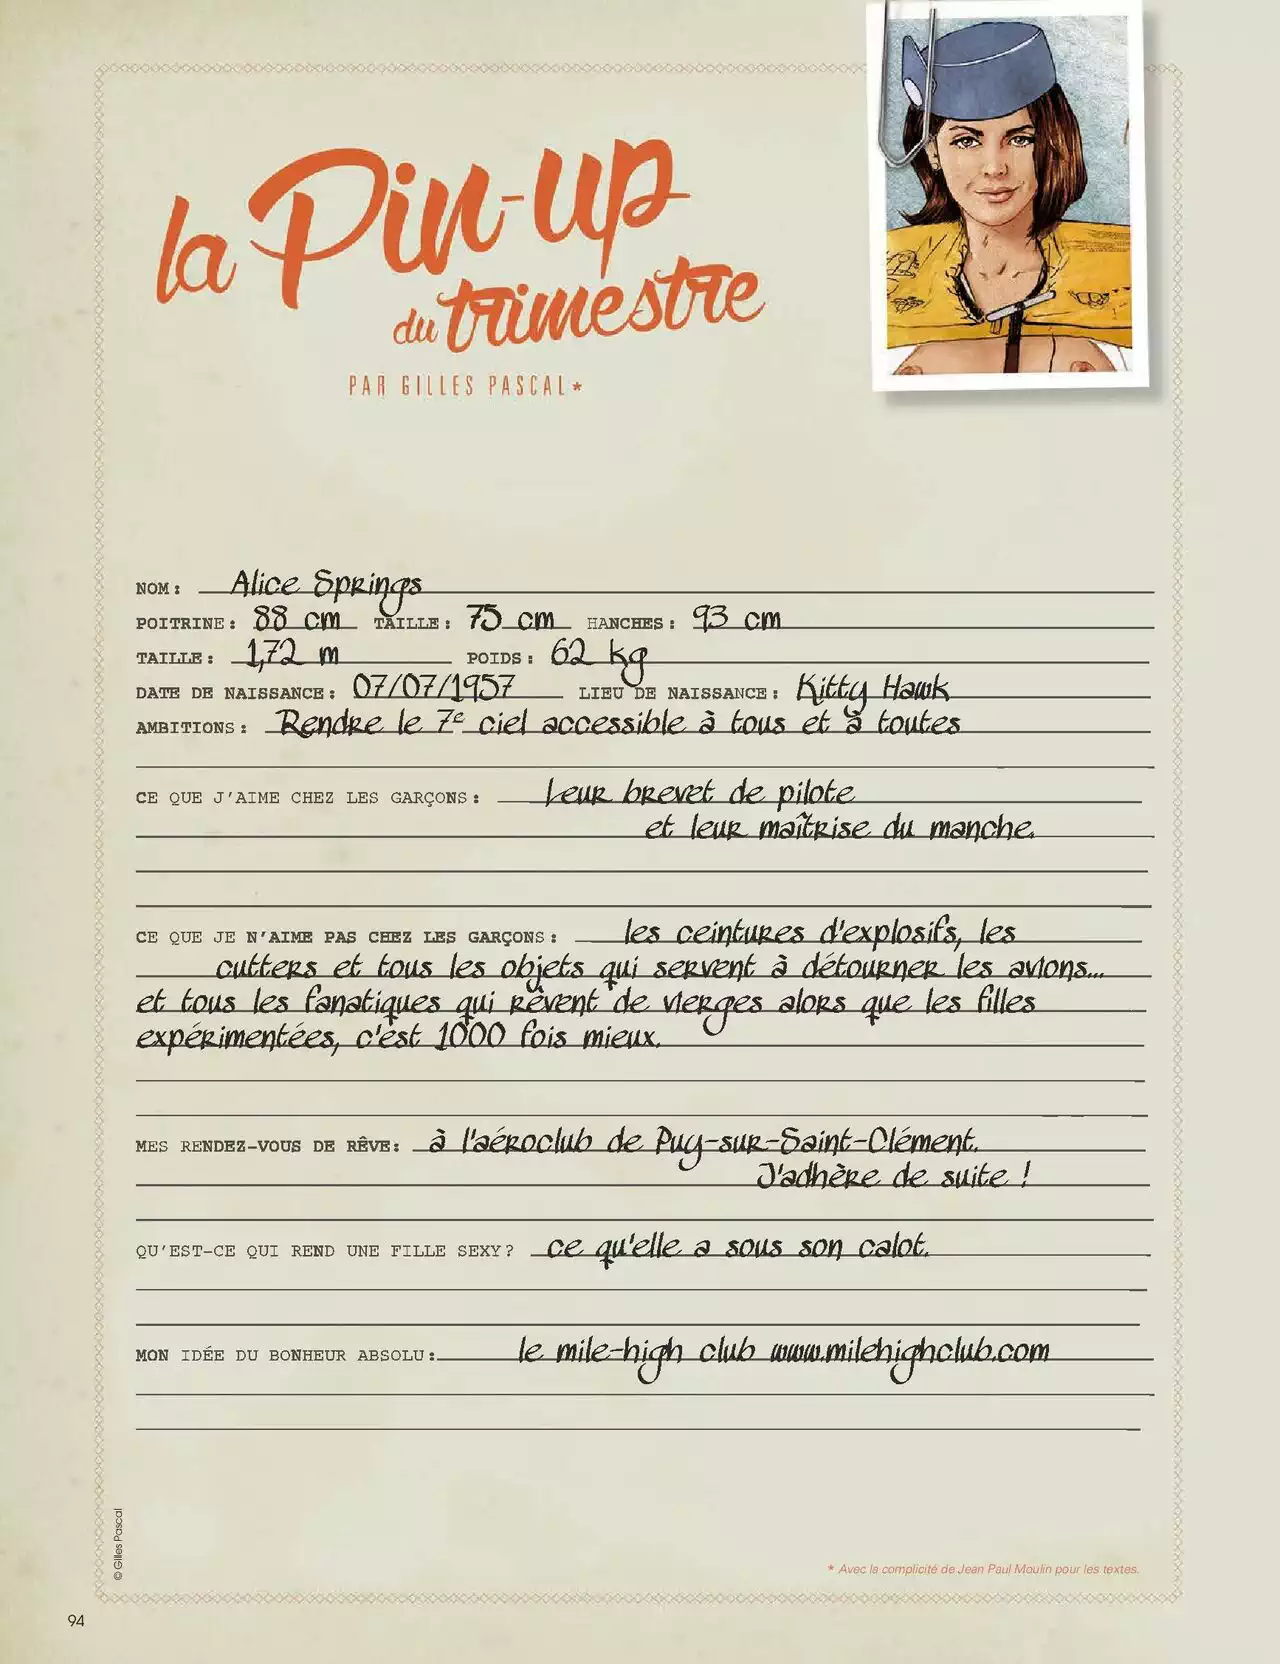 la Pin-up
du trimestre
PAR GILLES PASCAL*
NOM : Alice Springs
POITRINE : 88 cm TAILLE : 75 cm HANCHES : 93 cm
TAILLE : 1,72 m POIDS : 62 kg
DATE DE NAISSANCE : 07/07/1957 LIEU DE NAISSANCE : Kitty Hawk
AMBITIONS : Rendre le 7e ciel accessible à tous et à toutes
CE QUE J'AIME CHEZ LES GARÇONS : Leur brevet de pilote
et leur maîtrise du manche.
CE QUE JE N'AIME PAS CHEZ LES GARÇONS : les ceintures d'explosifs, les
cutters et tous les objets qui servent à détourner les avions...
et tous les fanatiques qui rêvent de vierges alors que les filles
expérimentées, c'est 1000 fois mieux.
MES RENDEZ-VOUS DE RÊVE : à l'aéroclub de Puy-sur-Saint-Clément.
J'adhère de suite !
QU'EST-CE QUI REND UNE FILLE SEXY ? ce qu'elle a sous son calot.
MON IDÉE DU BONHEUR ABSOLU : le mile-high club www.milehighclub.com
© Gilles Pascal
* Avec la complicité de Jean Paul Moulin pour les textes.
94